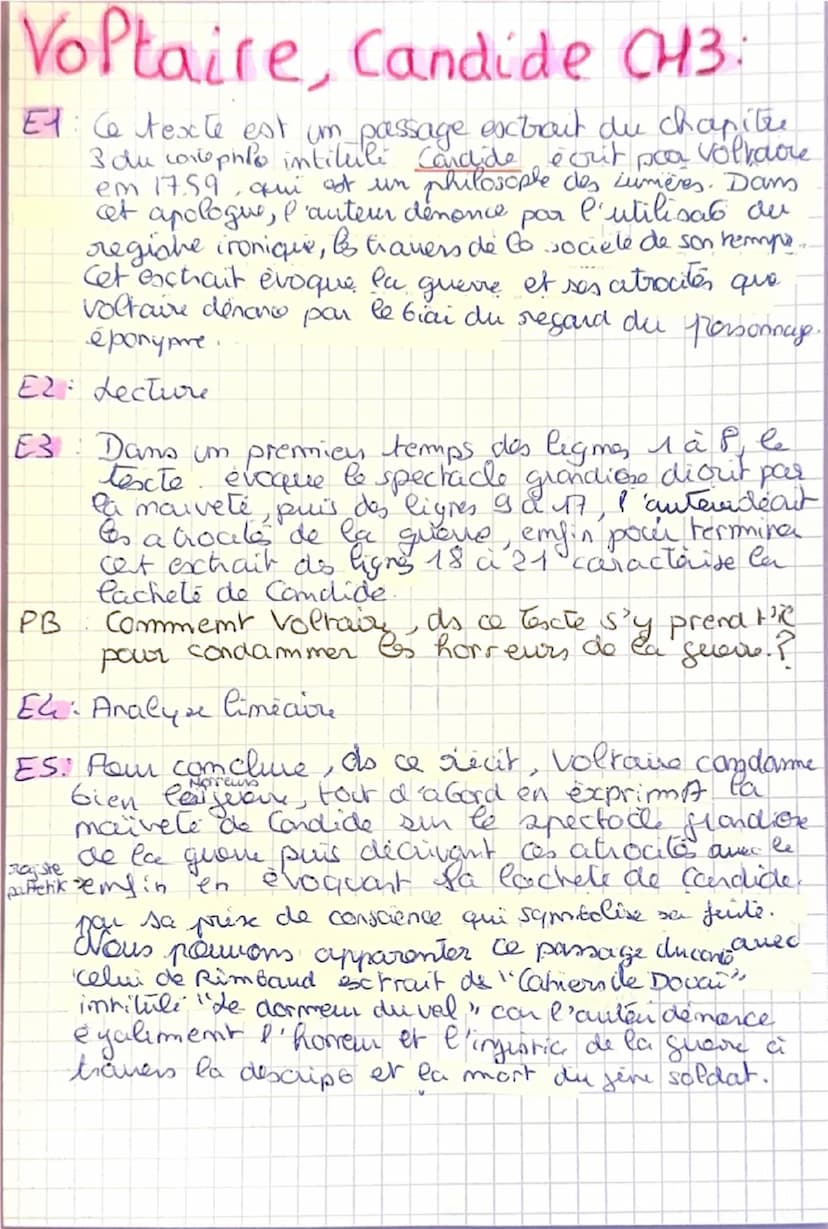 Voltaire, Candide CH3:
E1 : Ce texte est un passage extrait du chapitre
3 du conte philo intitulé Candide, écrit par Voltaire
en 1759, qui est un philosophe des Lumières. Dans
cet apologue, l'auteur dénonce par l'utilisat° du
registre ironique, les travers de la société de son temps.
Cet extrait évoque la guerre et ses atrocités que
Voltaire dénonce par le biai du regard du personnage
éponyme.
E2 : Lecture
E3 : Dans un premier temps des lignes 1 à 8, le
texte évoque le spectacle grandiose décrit par
la naïveté, puis des lignes 9 à 17, l'auteur décrit
les atrocités de la guerre, enfin pour terminer
cet extrait des lignes 18 à 21 caractérise la
lacheté de Candide.
PB : Comment Voltaire, ds ce texte s'y prend t'il
pour condamner les horreurs de la guerre ?
E4 : Analyse linéaire
E5 : Pour conclure, ds ce récit, Voltaire condamne
horreurs
bien les guerre, tout d'abord en exprimant la
naïveté de Candide sur le spectacle grandiose
de la guerre puis décrivant ces atrocités avec le
registre
pathétik enfin en évoquant sa lacheté de Candide,
par sa prise de conscience qui symbolise sa fuite.
Nous pouvons apparenter ce passage du conte avec
celui de Rimbaud extrait de "Cahiers de Douai"
intitulé "Le dormeur du val" car l'auteur dénonce
également l'horreur et l'injustice de la guerre à
travers la descript° et la mort du jeune soldat.